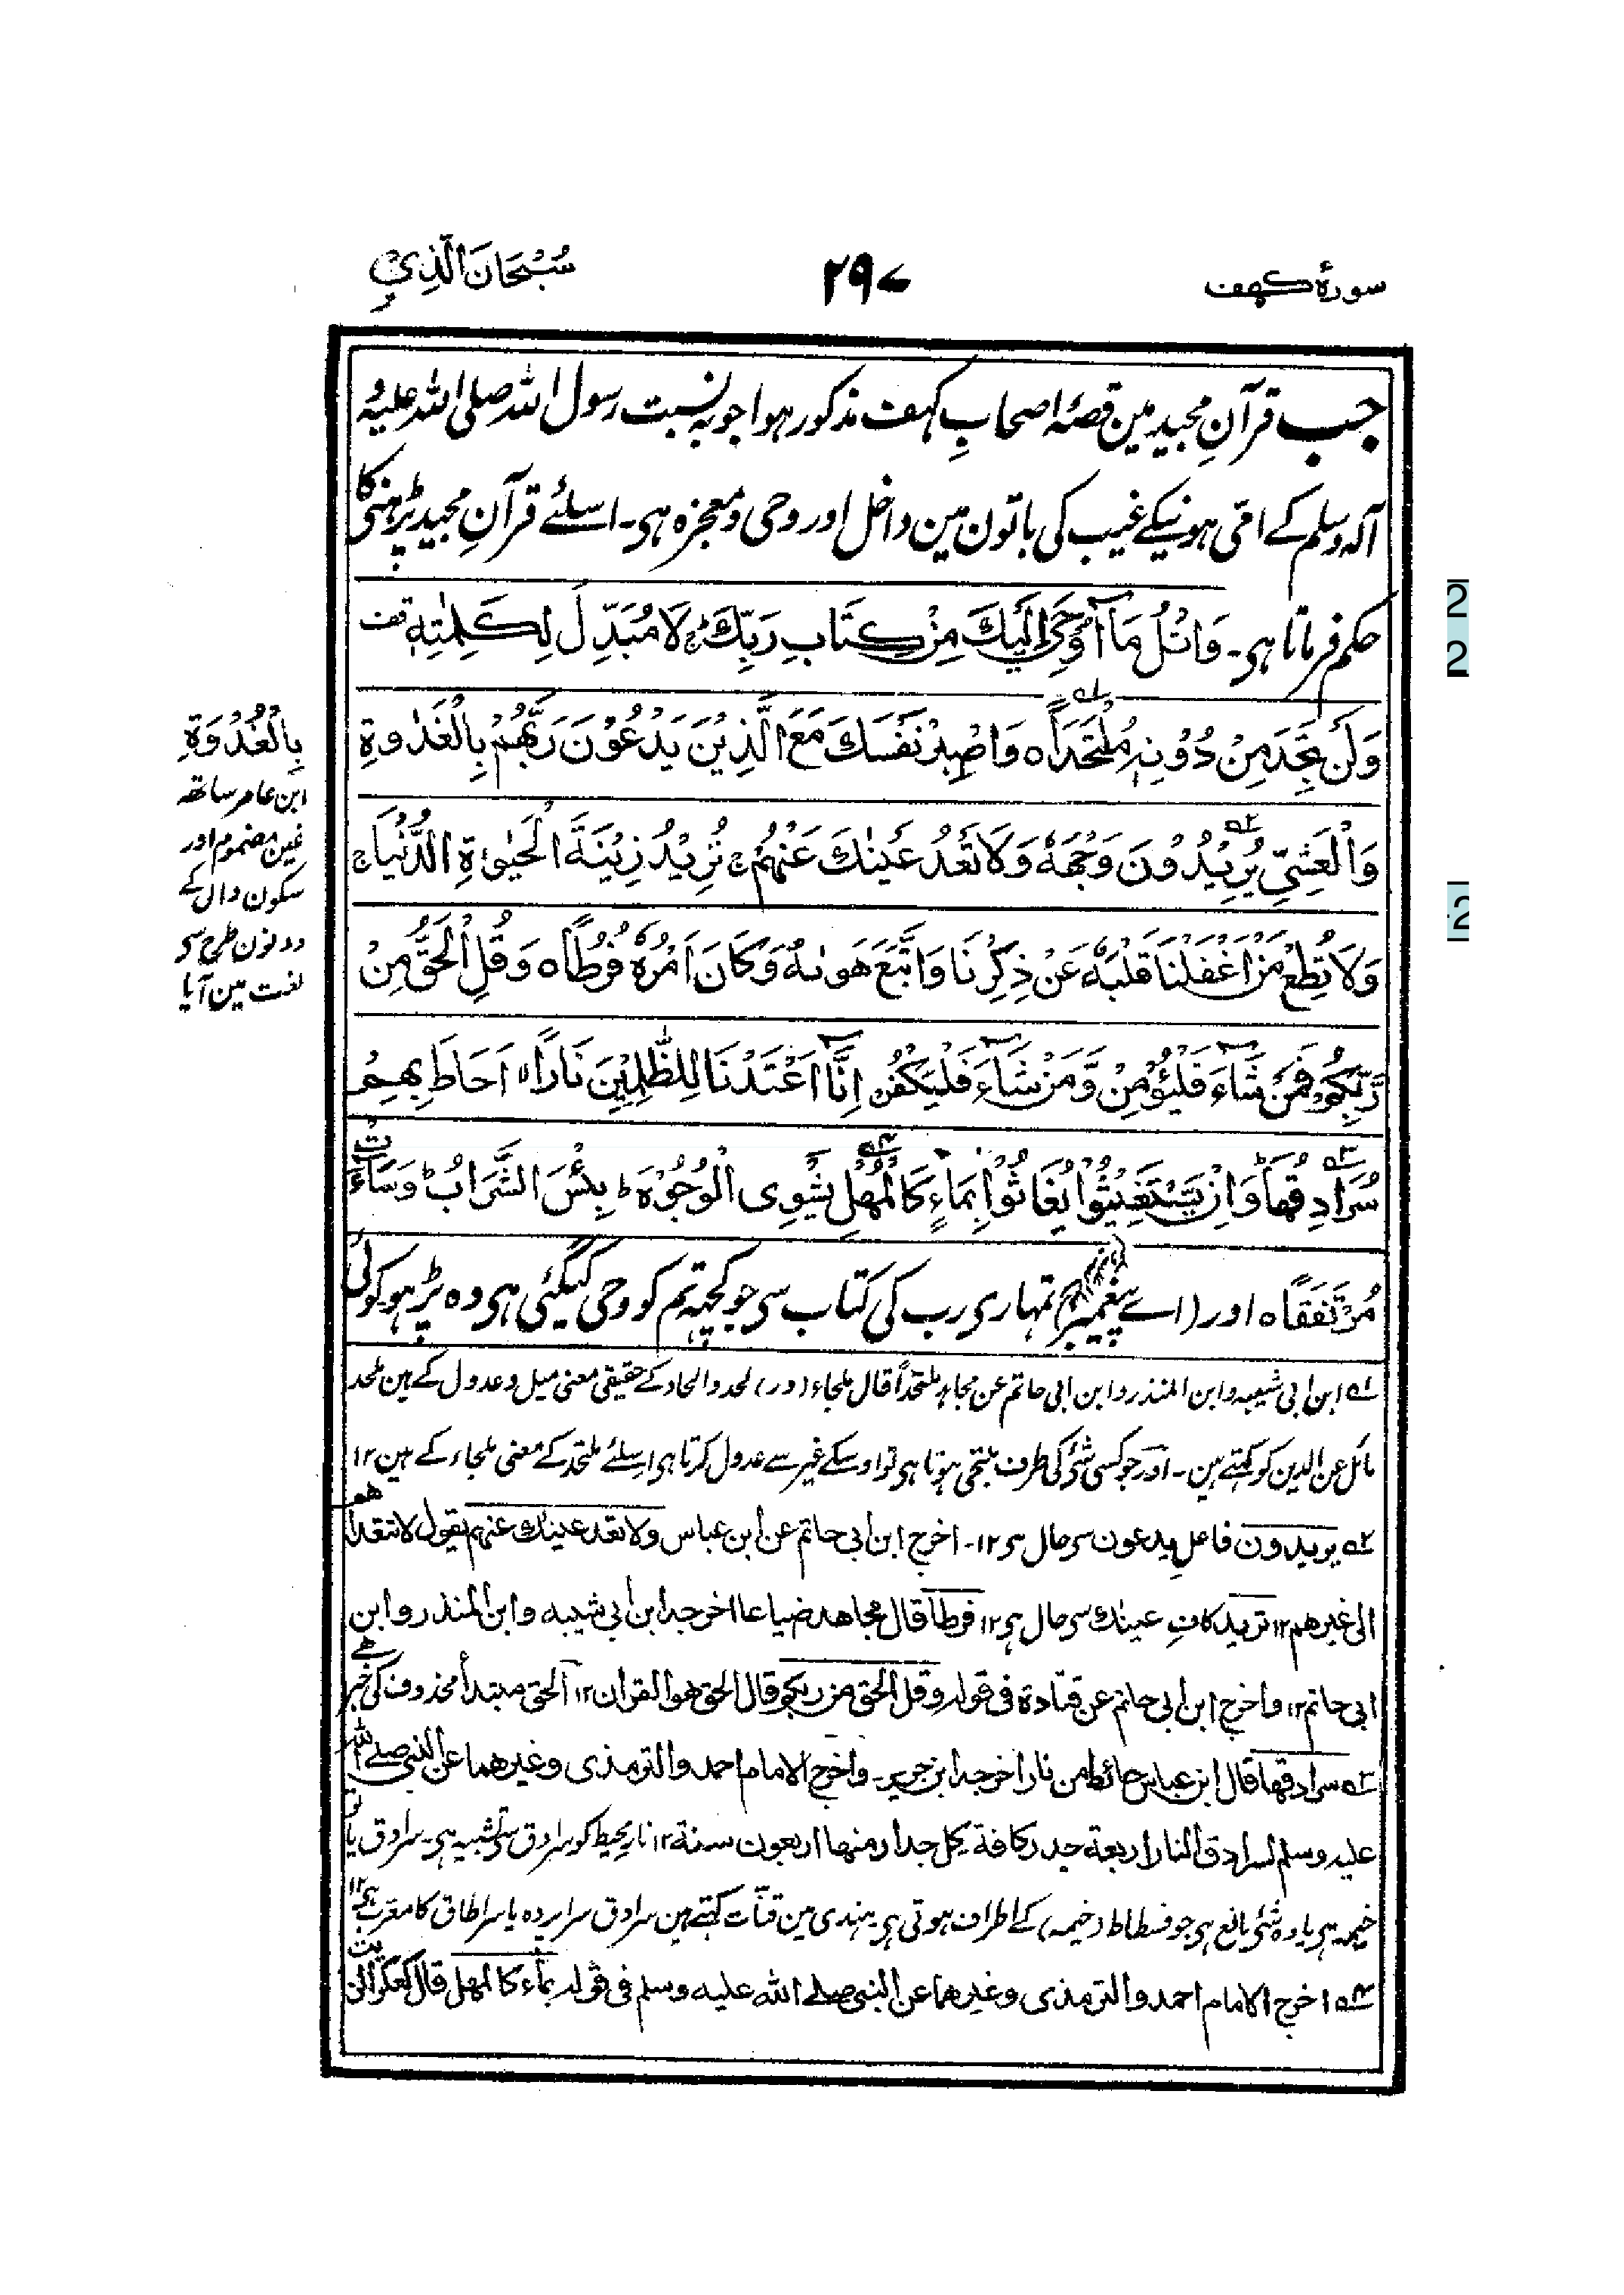 سورۂ کہف
۲۹۷
سُبْحَانَ الَّذِيْ
جب قرآنِ مجید مین قصۂ اصحابِ کہف مذکور ہوا جو بہ نسبت رسول اللہ صلی اللہ علیہ و
آلہ وسلم کے امّی ہونیکے غیب کی باتون مین داخل اور وحی و معجزہ ہی۔ اسلئے قرآنِ مجید پڑہنی کا
حکم فرماتا ہی۔ وَاتْلُ مَآ اُوْحِيَ اِلَيْكَ مِنْ كِتَابِ رَبِّكَ ؕۚ لَا مُبَدِّلَ لِكَلِمٰتِهٖ قف
وَلَنْ تَجِدَ مِنْ دُوْنِهٖ مُلْتَحَدًا ٥ وَاصْبِرْ نَفْسَكَ مَعَ الَّذِيْنَ يَدْعُوْنَ رَبَّهُمْ بِالْغَدٰوةِ
وَالْعَشِيِّ يُرِيْدُوْنَ وَجْهَهٗ وَلَا تَعْدُ عَيْنٰكَ عَنْهُمْ ۚ تُرِيْدُ زِيْنَةَ الْحَيٰوةِ الدُّنْيَا ۚ
وَلَا تُطِعْ مَنْ اَغْفَلْنَا قَلْبَهٗ عَنْ ذِكْرِنَا وَاتَّبَعَ هَوٰىهُ وَكَانَ اَمْرُهٗ فُرُطًا ٥ وَقُلِ الْحَقُّ مِنْ
رَّبِّكُمْ فَمَنْ شَآءَ فَلْيُؤْمِنْ وَّمَنْ شَآءَ فَلْيَكْفُرْ اِنَّآ اَعْتَدْنَا لِلظّٰلِمِيْنَ نَارًا ۙ اَحَاطَ بِهِمْ
سُرَادِقُهَا ؕ وَاِنْ يَّسْتَغِيْثُوْا يُغَاثُوْا بِمَآءٍ كَالْمُهْلِ يَشْوِى الْوُجُوْهَ ؕ بِئْسَ الشَّرَابُ ؕ وَسَآءَتْ
مُرْتَفَقًا ٥ اور (اے پیغمبر) تمہاری رب کی کتاب سی جو کچھ تم کو وحی کیگئی ہی وہ پڑہو کوئی
بِالْغُدْوَةِ
ابن عامر ساتھ
غین مضموم اور
سکون دال کے
دونون طرح سی
لغت مین آیا
۱ہ ابن ابی شیبہ و ابن المنذر و ابن ابی حاتم عن مجاہد ملتحداً قال ملجاء (ور) لحد والحاد کے حقیقی معنی میل و عدول کے ہین ملحد
مائل عن الدین کو کہتے ہین۔ اور جو کسی شئ کی طرف ملتجی ہوتا ہی تو اوسکے غیر سے عدول کرتا ہی اسلئے ملتحد کے معنی ملجاء کے ہین ۱۲
۲ہ یریدون فاعلِ یدعون سی حال ہی ۱۲۔ اخرج ابن ابی حاتم عن ابن عباس ولا تعد عیناك عنهم یقول لا تتعدهم
الی غیرهم ۱۲ ترید کافِ عیناك سی حال ہی ۱۲ فرطاً قال مجاهد ضیاعا اخرجہ ابن ابی شیبہ و ابن المنذر و ابن
ابی حاتم ۱۲ و اخرج ابن ابی حاتم عن قتادة فی قولہ وقل الحق من ربکم قال الحق هو القران ۱۲ الحق مبتدأ محذوف کی خبر ہے
۳ہ سرادقها قال ابن عباس حائط من نار اخرجہ ابن جریر۔ و اخرج الامام احمد والترمذی وغیرهما عن النبی صلے اللہ
علیہ وسلم لسرادق النار اربعة جدر کافة کل جدار منها اربعون سنة ۱۲ نارِ محیط کو سرادق سی تشبیہ ہی۔ سرادق یا تو
خیمہ ہی یا وہ شئ مانع ہی جو فسطاط (خیمہ) کے اطراف ہوتی ہی ہندی مین قنات کہتے ہین سرادق سراپردہ یا سراطاق کا معرّب ہی ۱۲
۴ہ اخرج الامام احمد والترمذی وغیرهما عن النبی صلے اللہ علیہ وسلم فی قولہ بماء کالمهل قال کعکر الزیت